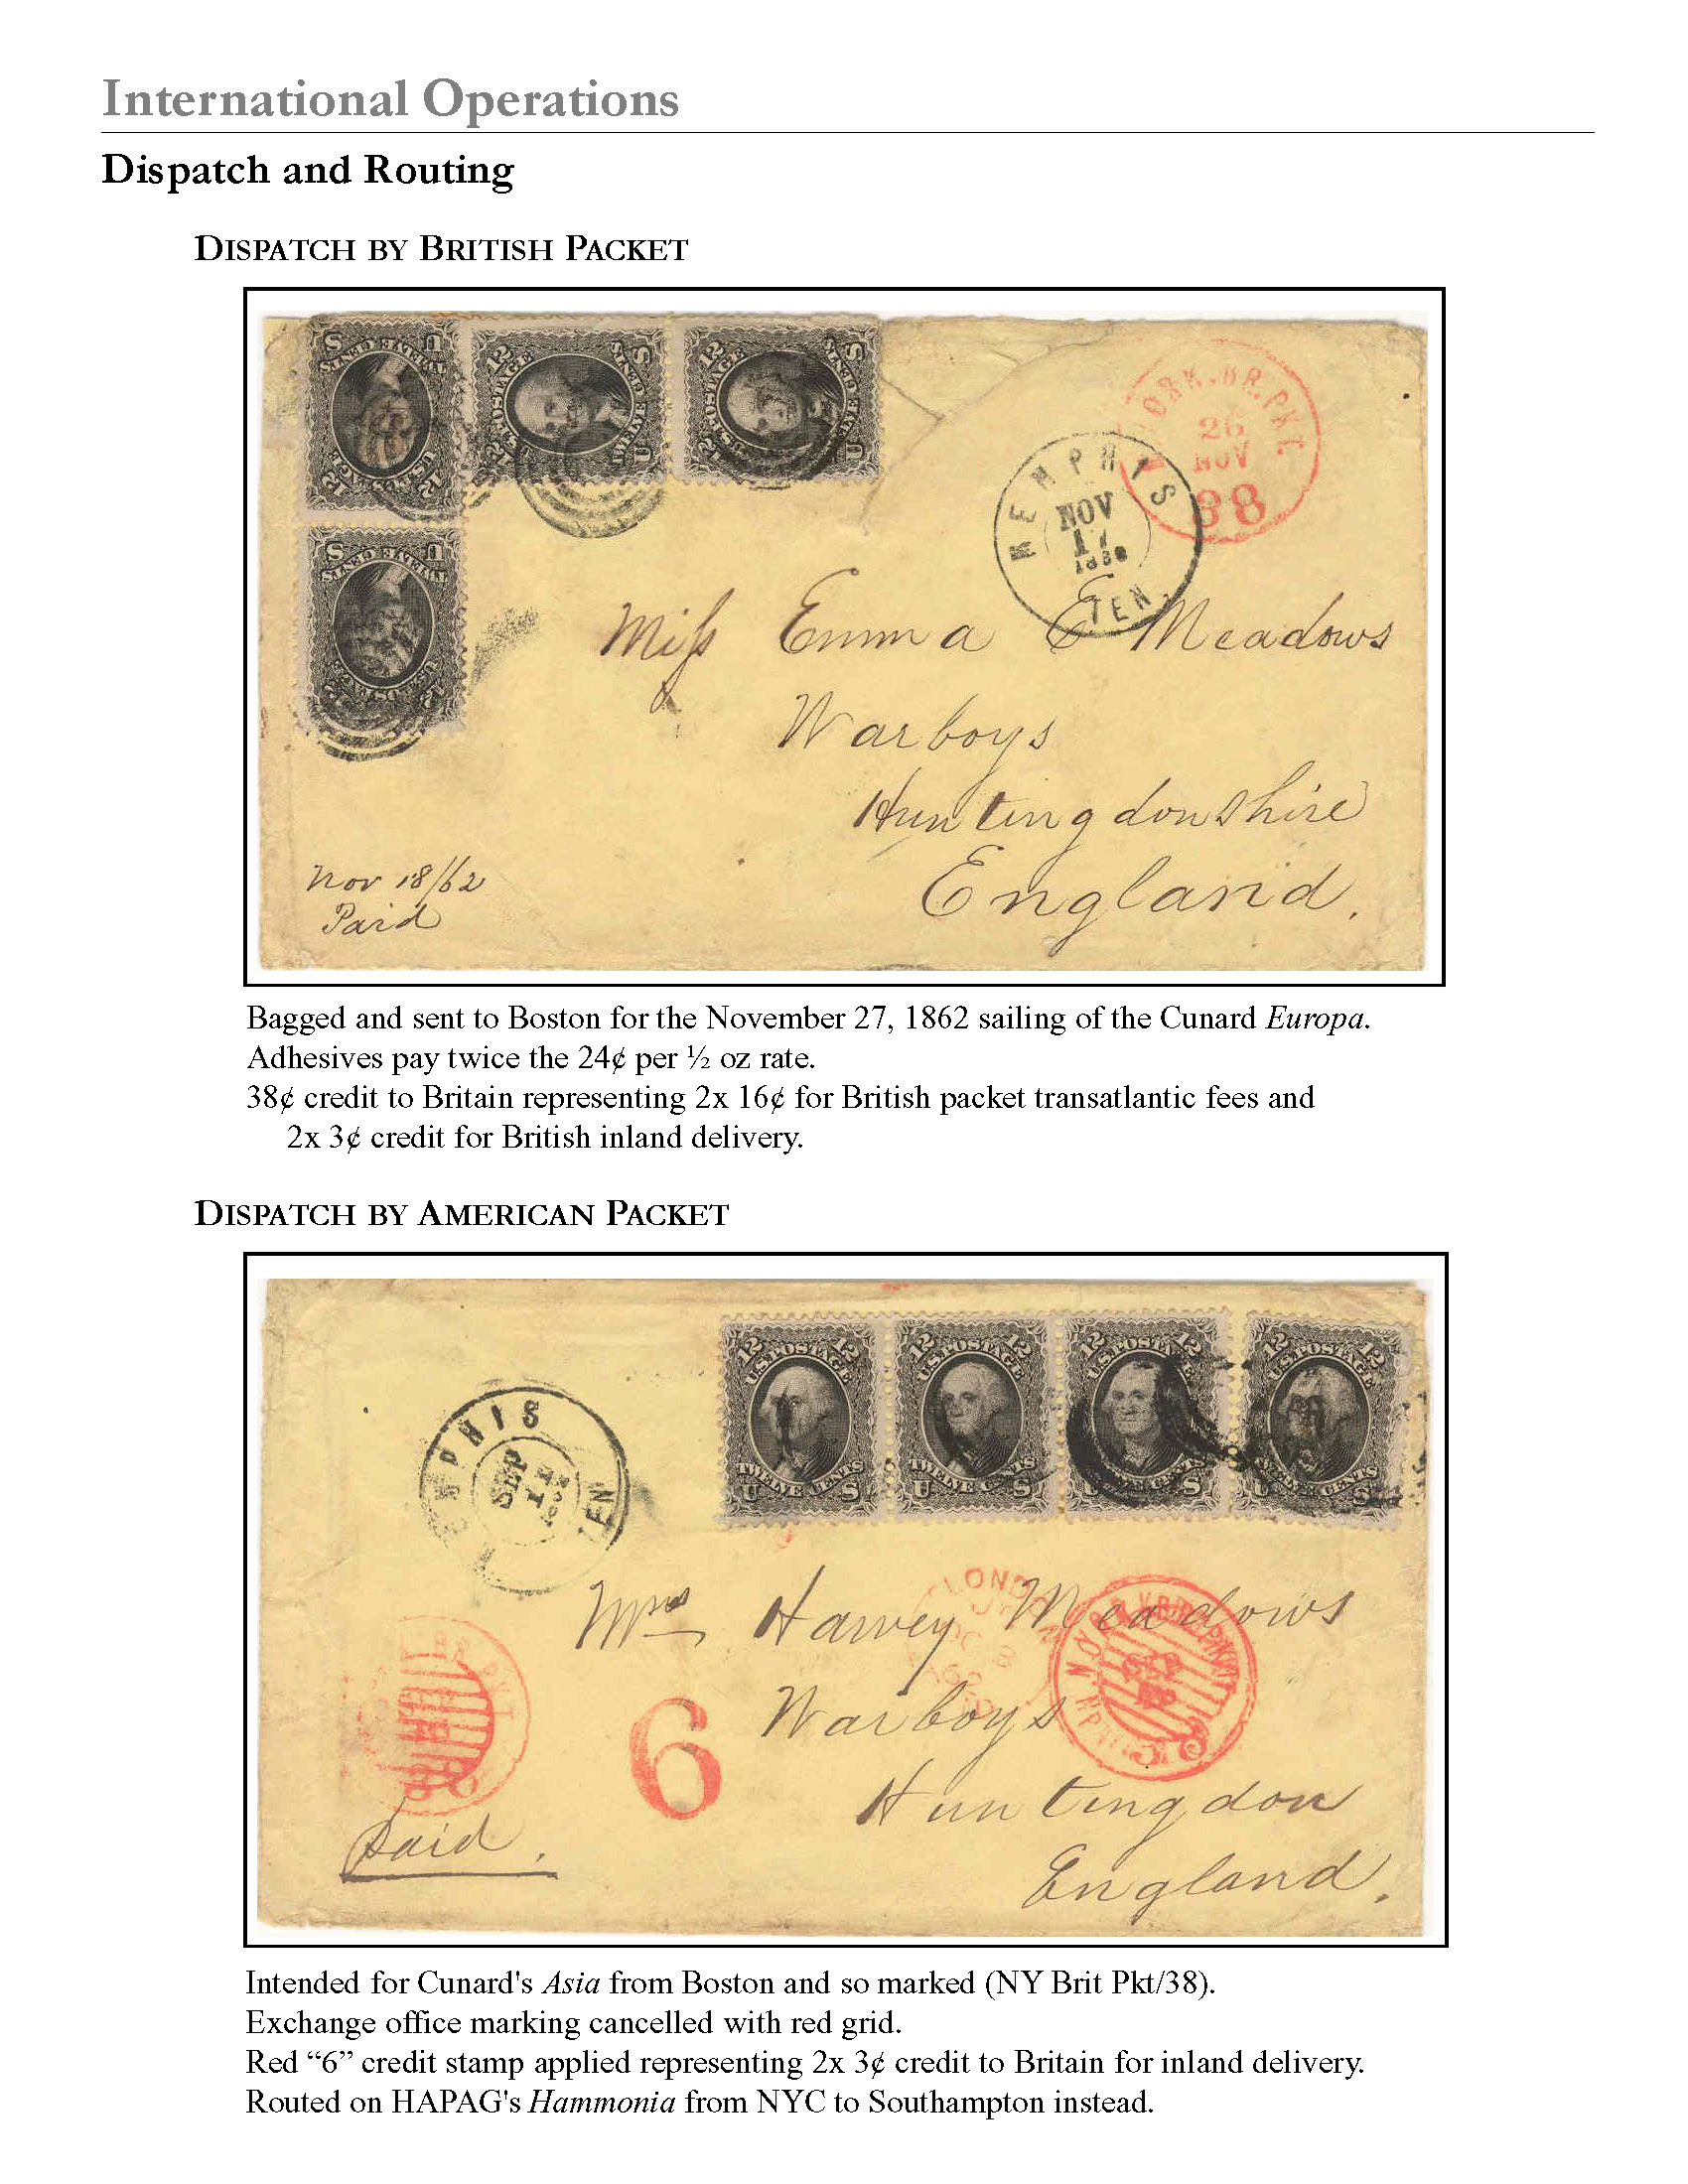 International Operations
Dispatch and Routing
DISPATCH BY BRITISH PACKET
12 12
U.S. POSTAGE
TWELVE CENTS
U S
12 12
U.S. POSTAGE
TWELVE CENTS
U S
12 12
U.S. POSTAGE
TWELVE CENTS
U S
12 12
U.S. POSTAGE
TWELVE CENTS
U S
ORK. BR. PKT.
26
NOV
38
MEMPHIS
NOV
17
TEN.
Miss Emma E Meadows
Warboys
Huntingdonshire
England.
Nov 18/62
Paid
Bagged and sent to Boston for the November 27, 1862 sailing of the Cunard Europa.
Adhesives pay twice the 24¢ per ½ oz rate.
38¢ credit to Britain representing 2x 16¢ for British packet transatlantic fees and
2x 3¢ credit for British inland delivery.
DISPATCH BY AMERICAN PACKET
12 12
U.S. POSTAGE
TWELVE CENTS
U S
12 12
U.S. POSTAGE
TWELVE CENTS
U S
12 12
U.S. POSTAGE
CENTS
U S
12 12
U.S. POSTAGE
TWELVE CENTS
U S
EMPHIS
SEP
11
TEN
LONDON
PKT
38
6
Mrs Harvey Meadows
Warboys
Huntingdon
England.
Paid.
Intended for Cunard's Asia from Boston and so marked (NY Brit Pkt/38).
Exchange office marking cancelled with red grid.
Red “6” credit stamp applied representing 2x 3¢ credit to Britain for inland delivery.
Routed on HAPAG's Hammonia from NYC to Southampton instead.